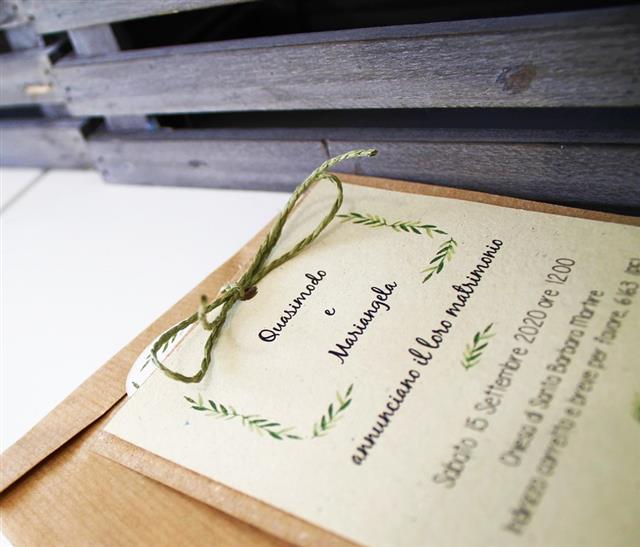 Quasimodo
e
Mariangela
annunciano il loro matrimonio
Sabato 15 Settembre 2020 ore 12.00
Chiesa di Santa Barbara Martire
Indirizzo corretto e breve per favore, 6163